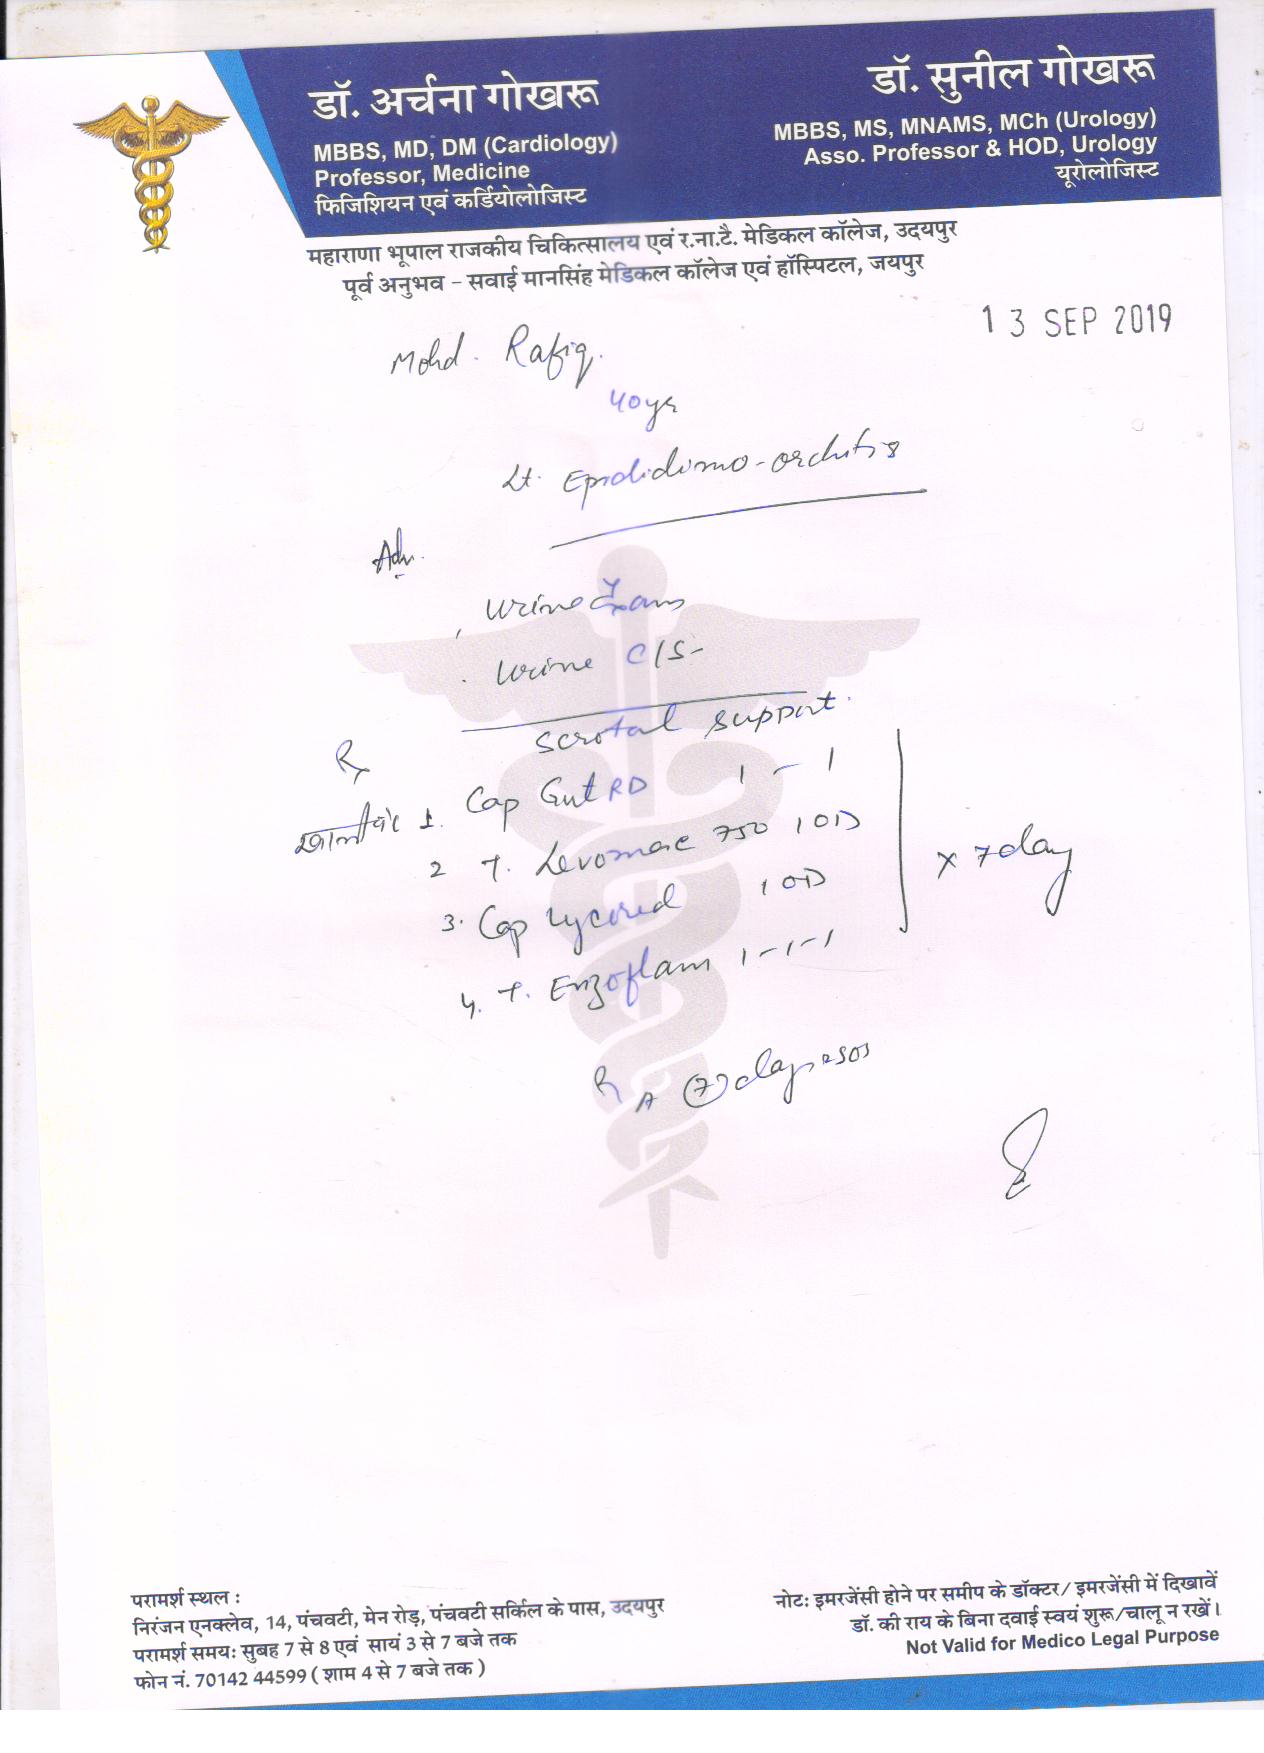 डॉ. अर्चना गोखरू
MBBS, MD, DM (Cardiology)
Professor, Medicine
फिजिशियन एवं कर्डियोलोजिस्ट
डॉ. सुनील गोखरू
MBBS, MS, MNAMS, MCh (Urology)
Asso. Professor & HOD, Urology
यूरोलोजिस्ट
महाराणा भूपाल राजकीय चिकित्सालय एवं र.ना.टै. मेडिकल कॉलेज, उदयपुर
पूर्व अनुभव – सवाई मानसिंह मेडिकल कॉलेज एवं हॉस्पिटल, जयपुर
13 SEP 2019
Mohd. Rafiq.
40 yr
Lt. Epididimo-orchitis
Adv.
Urine Exam
Urine C/S
Scrotal support.
Rx
1. Cap Gut RD 1 - 1
2 T. Levomac 750 1 OD
3. Cap Lycored 1 OD
x 7 day
4. T. Enzoflam 1-1-1
R A (7) days
परामर्श स्थल :
निरंजन एनक्लेव, 14, पंचवटी, मेन रोड़, पंचवटी सर्किल के पास, उदयपुर
परामर्श समयः सुबह 7 से 8 एवं सायं 3 से 7 बजे तक
फोन नं. 70142 44599 ( शाम 4 से 7 बजे तक )
नोटः इमरजेंसी होने पर समीप के डॉक्टर/ इमरजेंसी में दिखावें
डॉ. की राय के बिना दवाई स्वयं शुरू/चालू न रखें।
Not Valid for Medico Legal Purpose